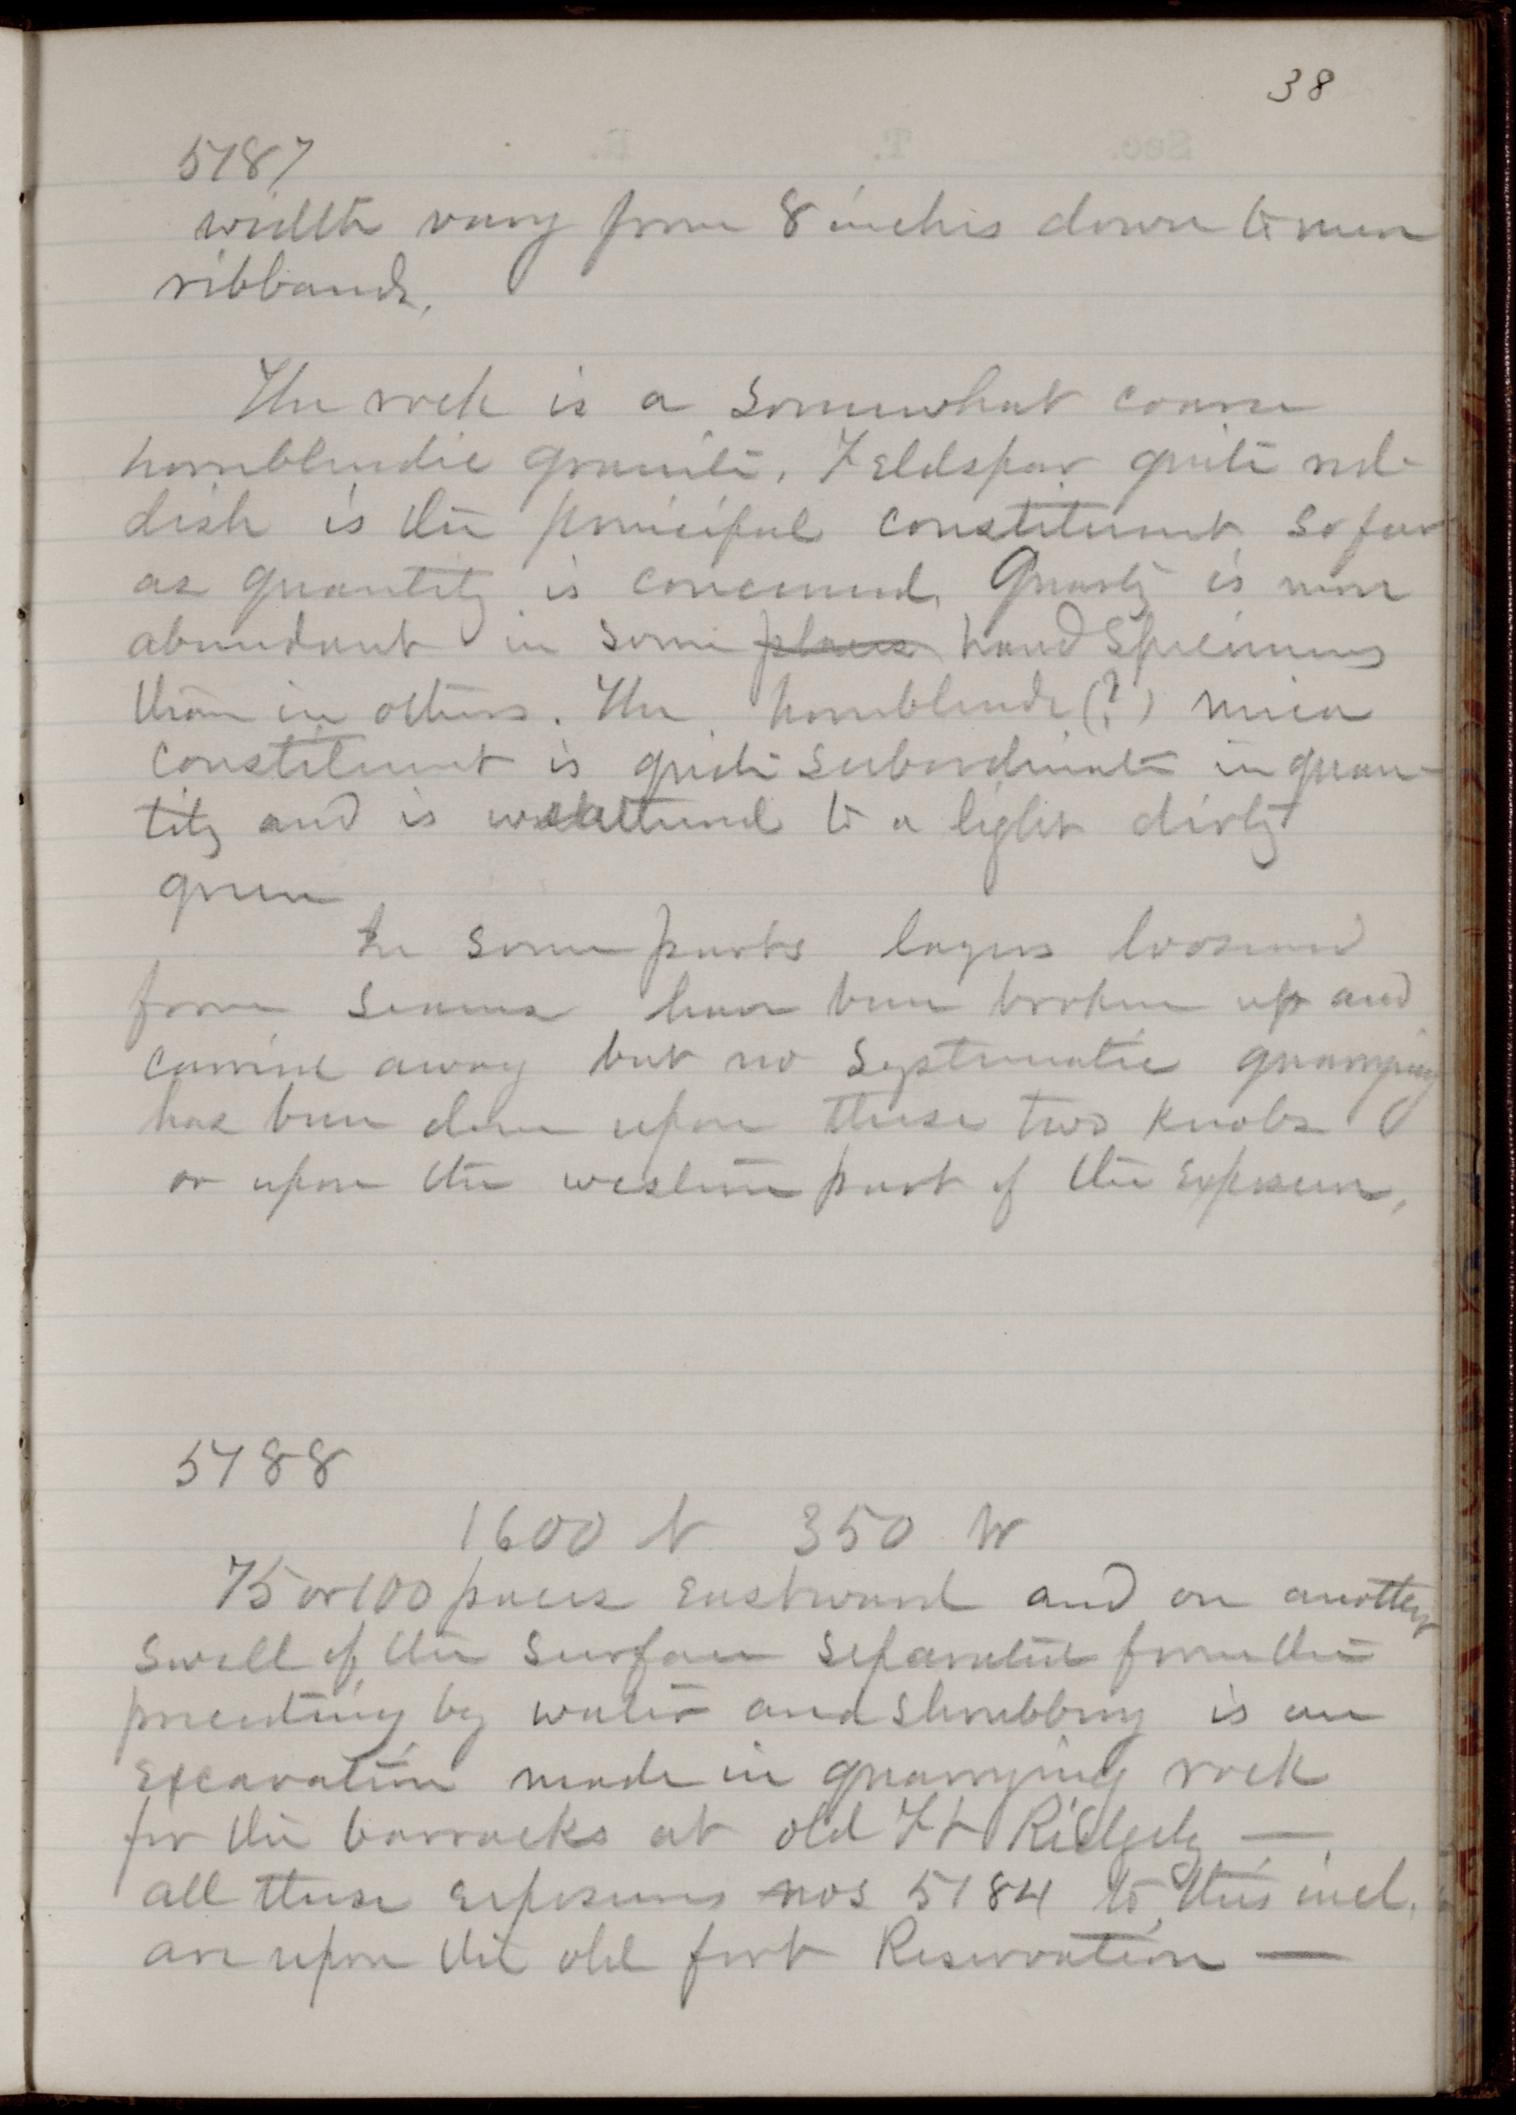 38
5187
width vary from 8 inches down to mere
ribbands.
The rock is a somewhat coarse
hornblendic granite. Feldspar quite red-
dish is the principal constituent so far
as quantity is concerned. Quartz is more
abundant in some places hand specimens
than in others. The hornblende (?) mica
constituent is quite subordinate in quan-
tity and is weathered to a light dirty
green
In some parts layers loosened
from seams have been broken up and
carried away but no systematic quarrying
has been done upon these two knobs
or upon the western part of the exposure.
5188
1600 N 350 W
75 or 100 paces eastward and on another
swell of the surface separated from the
preceding by water and shrubbery is an
excavation made in quarrying rock
for the barracks at old Ft Ridgely —
all these exposures nos 5184 to this incl.
are upon the old fort Reservation —